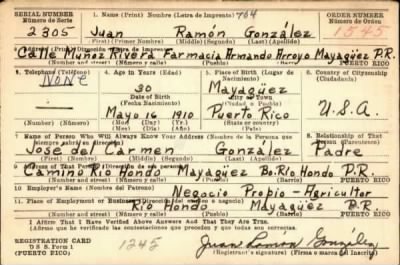 SERIAL NUMBER
Número de Serie
1. Name (Print) Nombre (Letra de Imprenta) 704
ORDER NUMBER
Número de Orden
2305 Juan Ramón González 1545
(First) (Primer Nombre) (Middle) (Segundo) (Last) (Apellido)
Calle Muñoz Rivera Farmacia Armando Arroyo Mayagüez P.R.
(Number and street) (Número y calle) (Town) (Pueblo) (Barrio) PUERTO RICO
3. Telephone (Teléfono)
None
4. Age in Years (Edad)
30
Date of Birth
(Fecha Nacimiento)
Mayo 16 1910
(Mo.) (Day) (Día) (Yr.) (Año)
5. Place of Birth (Lugar de Nacimiento)
Mayagüez
City or Town
(Ciudad o Pueblo)
Puerto Rico
(State or country)
6. Country of Citizenship
(Ciudadanía)
U.S.A.
(Number) (Núm)
7. Name of Person Who Will Always Know Your Address (Nombre de la Persona que
Siempre sabrá su dirección)
8. Relationship of That Person (Parentesco)
José del Carmen González Padre
(First) (Primer Nombre) (Middle) (Segundo) (Last) (Apellido)
Camino Río Hondo Mayagüez Bo. Río Hondo P.R.
(Number and street) (Número y calle) (Town) (Pueblo) (Barrio) PUERTO RICO
10 Employer's Name (Nombre del Patrono)
Negocio Propio - Agricultor
11. Place of Employment or Business
Río Hondo Mayagüez P.R.
(Number and street) (Número y calle) (Pueblo) (Barrio) PUERTO RICO
I Affirm That I Have Verified Above Answers And That They Are True.
Afirmo que he verificado las contestaciones que preceden y que todas son correctas.
REGISTRATION CARD
D S S. Form 1
(PUERTO RICO)
1245
Juan Ramón González
(Registrant's signature) (Firma o marca del Inscrito)